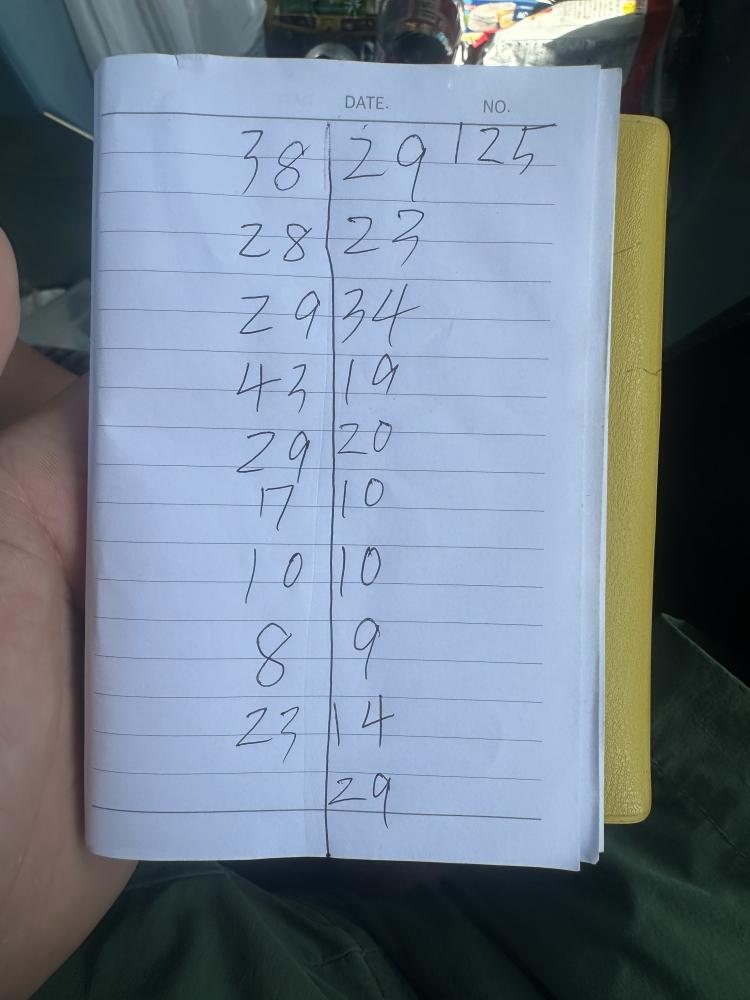 DATE. NO.
38 29 125
28 23
29 34
43 19
29 20
17 10
10 10
8 9
23 14
29